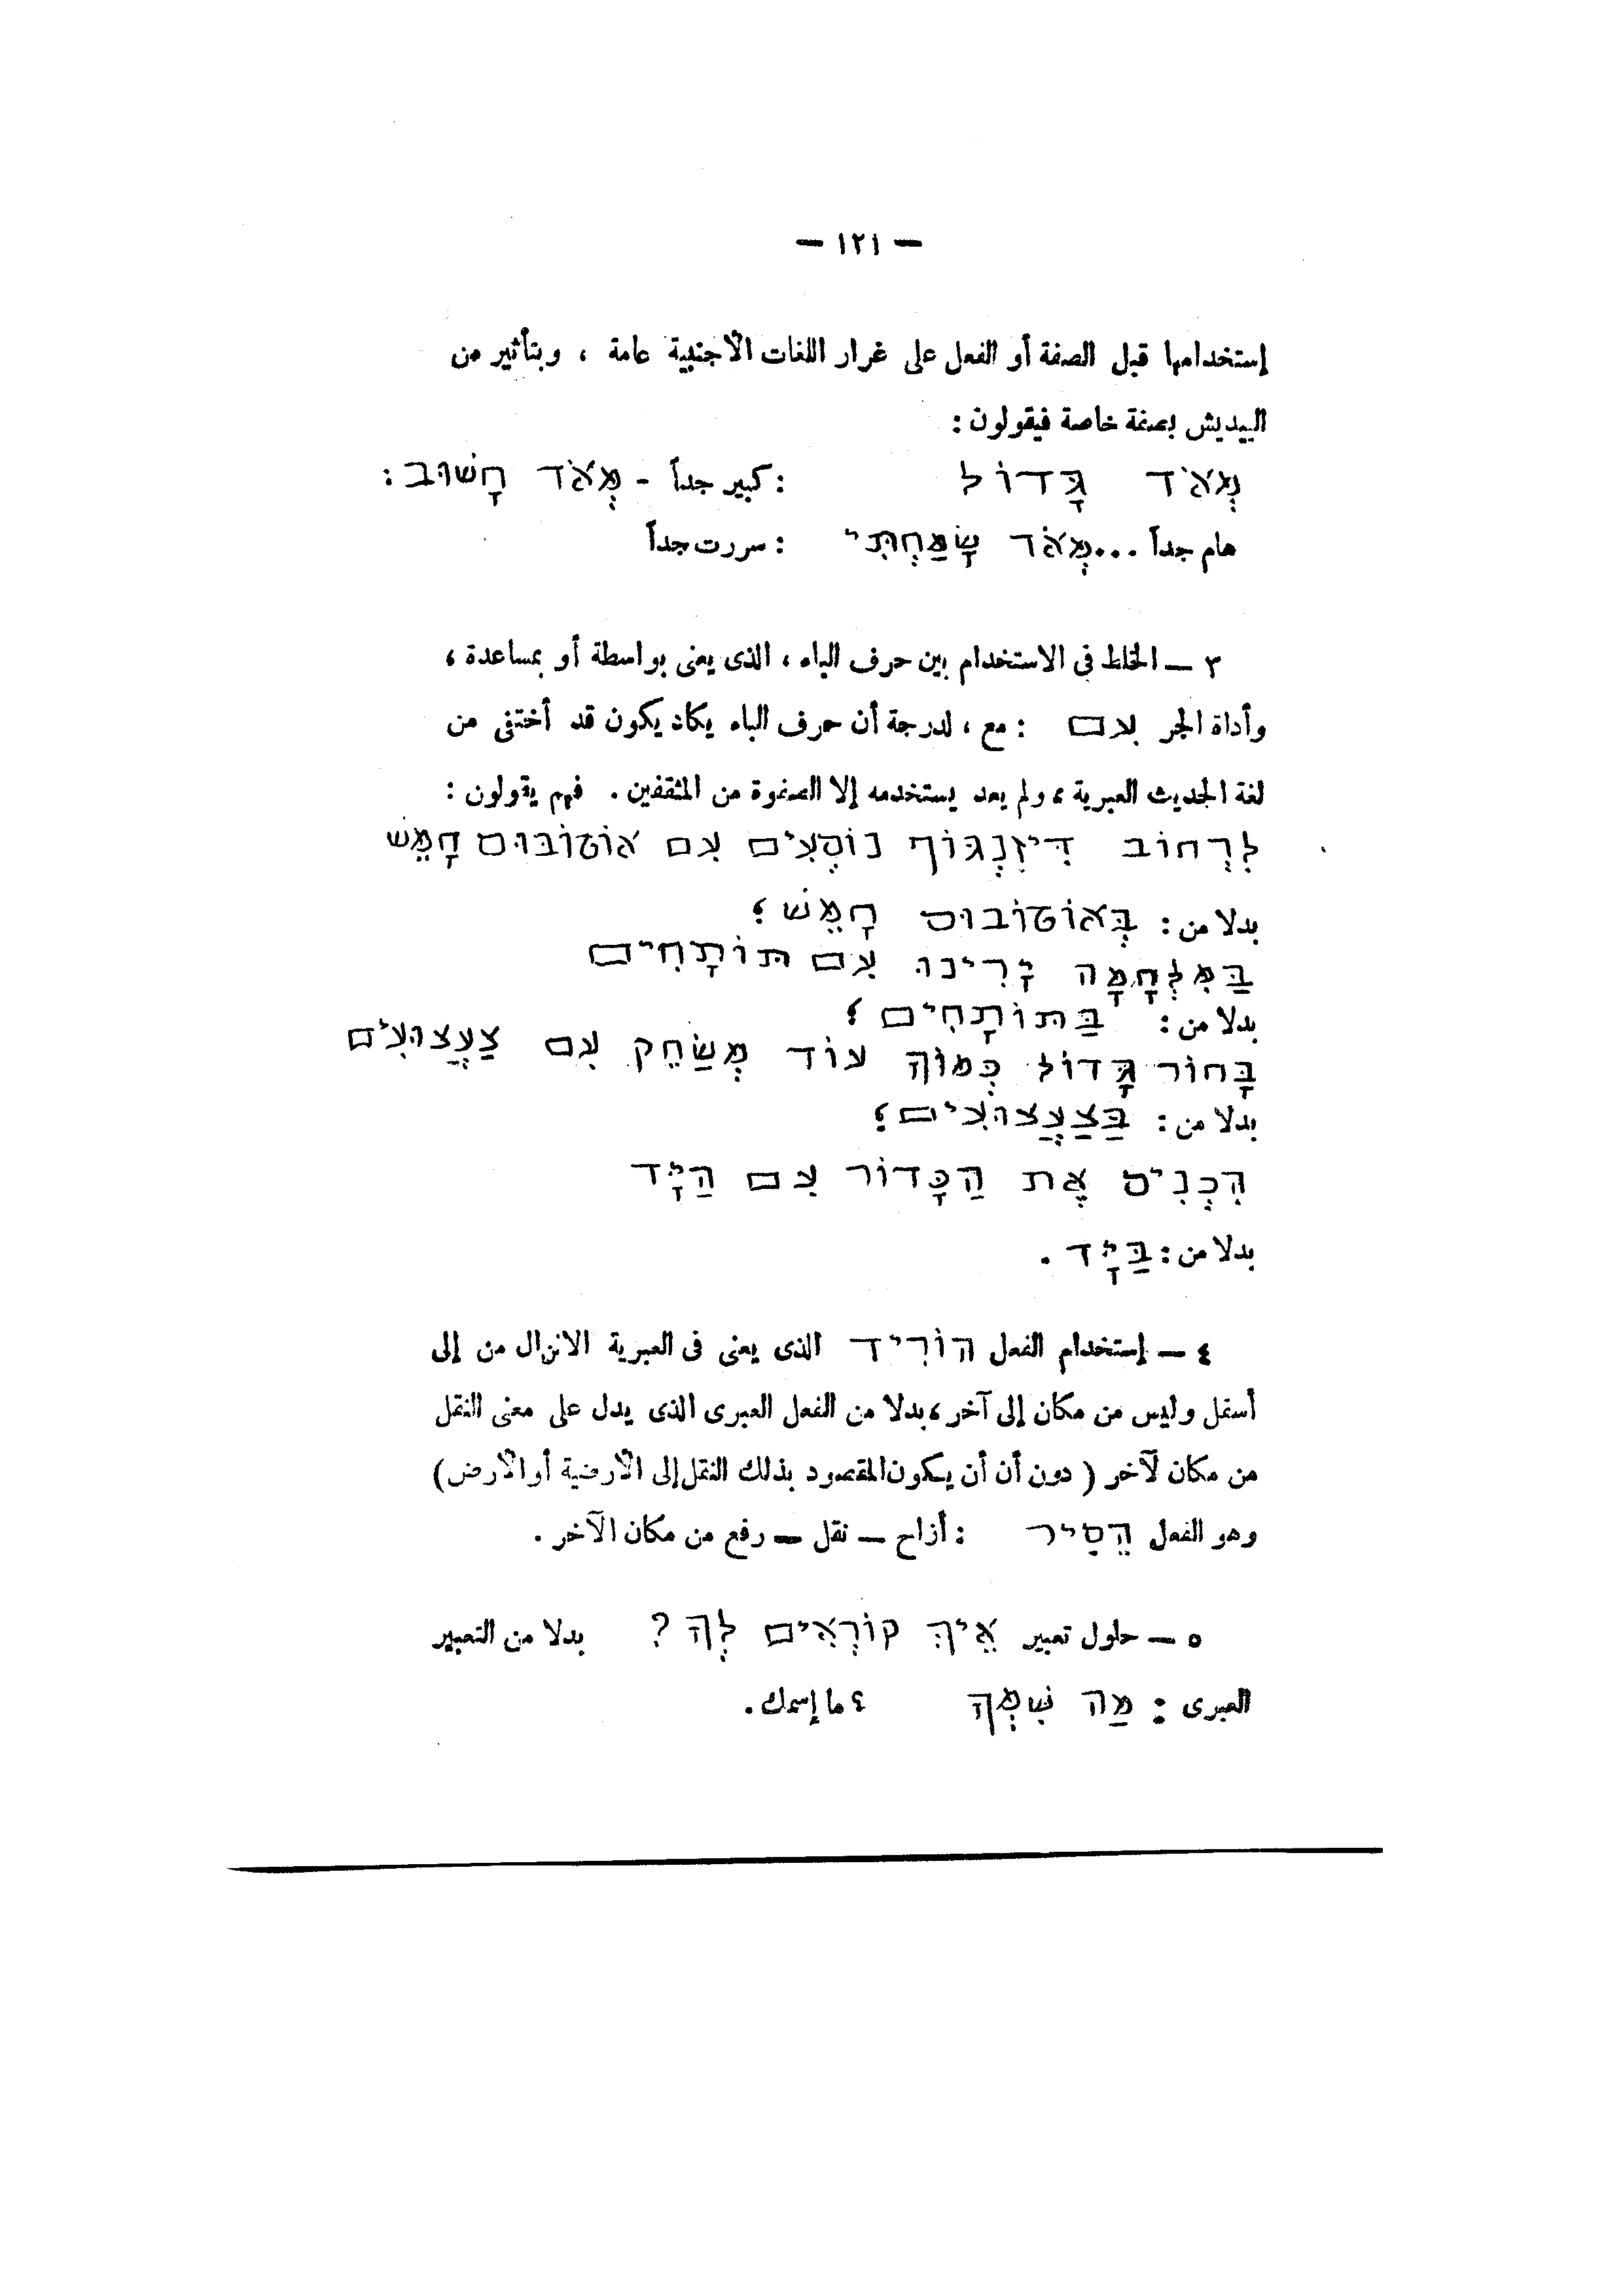 — ١٢١ —
إستخدامها قبل الصفة أو الفعل على غرار اللغات الأجنبية عامة ، وبتأثير من
الييديش بصفة خاصة فيقولون :
מְאֹד גָּדוֹל : كبير جداً - מְאֹד חָשׁוּב :
هام جداً ... מְאֹד שָׂמַחְתִּי : سررت جداً
٣ — الخلط فى الاستخدام بين حرف الباء ، الذى يعنى بواسطة أو بمساعدة ،
وأداة الجر עִם : مع ، لدرجة أن حرف الباء يكاد يكون قد أختفى من
لغة الحديث العبرية ، ولم يعد يستخدمه إلا الصفوة من المثقفين . فهم يقولون :
לִרְחוֹב דִּיזִנְגּוֹף נוֹסְעִים עִם אוֹטוֹבּוּס חָמֵשׁ
بدلا من : בְּאוֹטוֹבּוּס חָמֵשׁ ؟
בַּמִּלְחָמָה יָרִינוּ עִם תּוֹתָחִים
بدلا من : בַּתּוֹתָחִים ؟
בָּחוֹר גָּדוֹל כְּמוֹךָ עוֹד מְשַׂחֵק עִם צַעֲצוּעִים
بدلا من : בַּצַּעֲצוּעִים ؟
הִכְנִיס אֶת הַכָּדוֹר עִם הַיָּד
بدلا من : בַּיָּד .
٤ — إستخدام الفعل הוֹרִיד الذى يعنى فى العبرية الانزال من إلى
أسفل وليس من مكان إلى آخر ، بدلا من الفعل العبرى الذى يدل على معنى النقل
من مكان لآخر ( دون أن أن يكون المقصود بذلك النقل إلى الأرضية أو الأرض )
وهو الفعل הֵסִיר : أزاح — نقل — رفع من مكان الآخر .
٥ — حلول تعبير אֵיךְ קוֹרְאִים לְךָ ? بدلا من التعبير
العبرى : מַה שִּׁמְךָ ؟ ما إسمك .